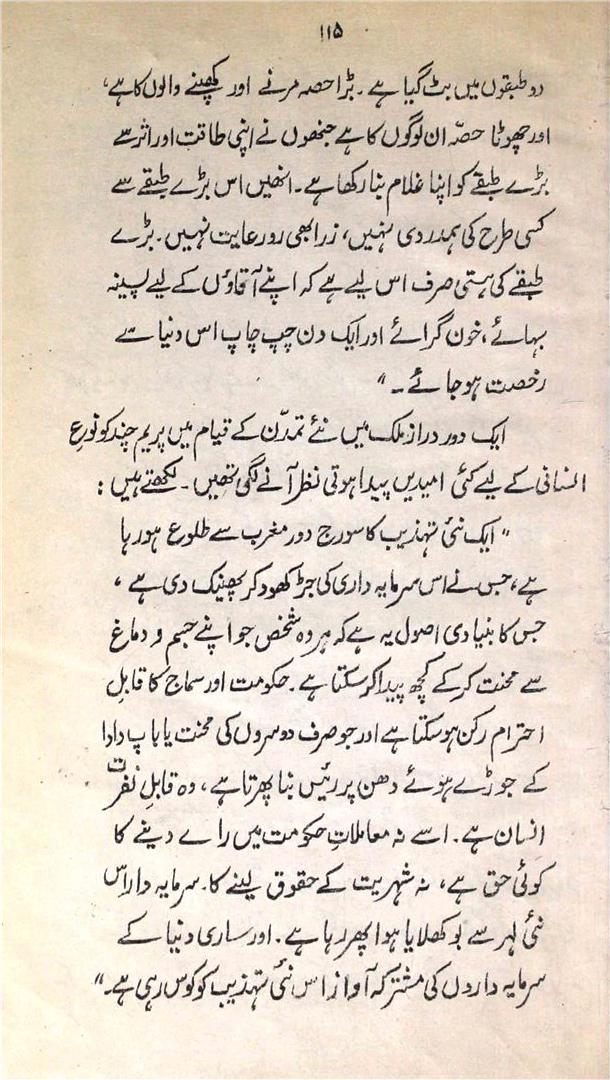 ۱۱۵
دو طبقوں میں بٹ گیا ہے۔ بڑا حصہ مرنے اور کھپنے والوں کا ہے،
اور چھوٹا حصّہ ان لوگوں کا ہے جنھوں نے اپنی طاقت اور اثر سے
بڑے طبقے کو اپنا غلام بنا رکھا ہے۔ انھیں اس بڑے طبقے سے
کسی طرح کی ہمدردی نہیں، زرا بھی رو رعایت نہیں۔ بڑے
طبقے کی ہستی صرف اس لیے ہے کہ اپنے آقاؤں کے لیے پسینہ
بہائے، خون گرائے اور ایک دن چپ چاپ اس دنیا سے
رخصت ہو جائے۔"
ایک دور دراز ملک میں نئے تمدّن کے قیام میں پریم چند کو نوعِ
انسانی کے لیے کئی امیدیں پیدا ہوتی نظر آنے لگی تھیں۔ لکھتے ہیں:
"ایک نئی تہذیب کا سورج دور مغرب سے طلوع ہو رہا
ہے، جس نے اس سرمایہ داری کی جڑ کھود کر پھینک دی ہے،
جس کا بنیادی اصول یہ ہے کہ ہر وہ شخص جو اپنے جسم و دماغ
سے محنت کر کے کچھ پیدا کر سکتا ہے۔ حکومت اور سماج کا قابلِ
احترام رکن ہو سکتا ہے اور جو صرف دوسروں کی محنت یا باپ دادا
کے جوڑے ہوئے دھن پر رئیس بنا پھرتا ہے، وہ قابلِ نفرت
انسان ہے۔ اسے نہ معاملاتِ حکومت میں راے دینے کا
کوئی حق ہے، نہ شہریت کے حقوق لینے کا۔ سرمایہ دار اس
نئی لہر سے بوکھلایا ہوا پھر رہا ہے۔ اور ساری دنیا کے
سرمایہ داروں کی مشترکہ آواز اس نئی تہذیب کو کوس رہی ہے۔"